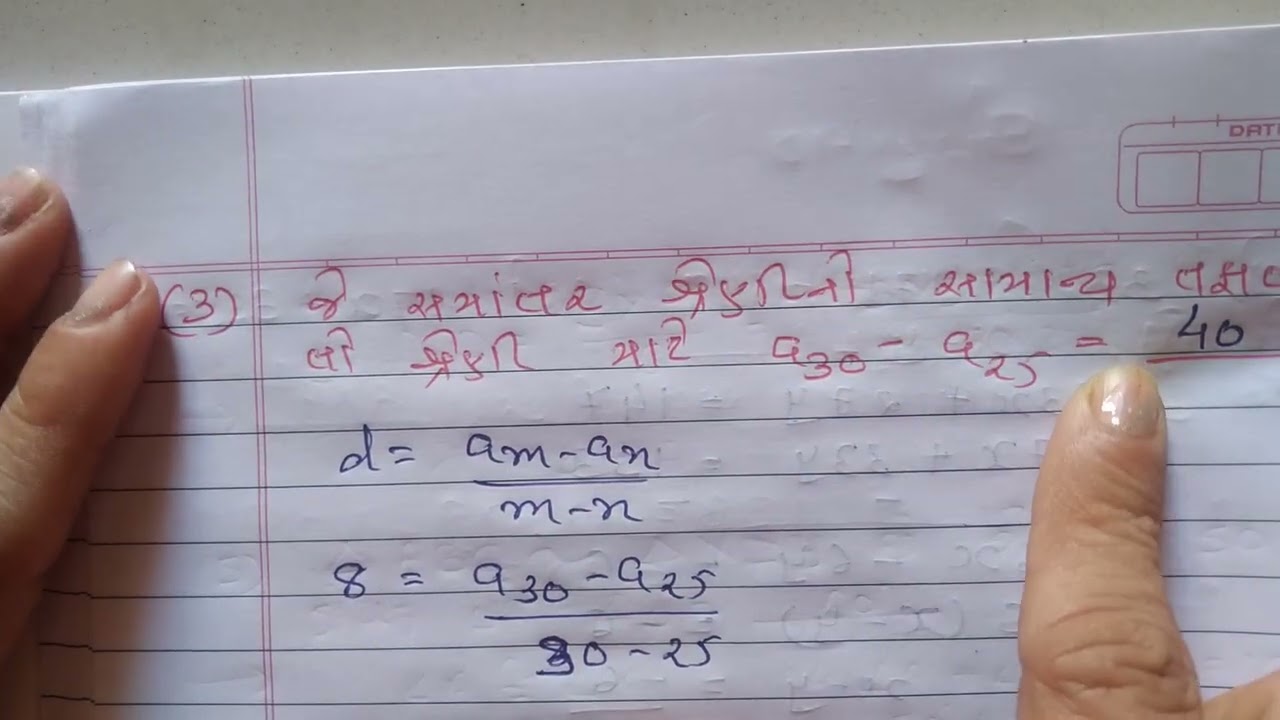 DATE
(3) જે સમાંતર શ્રેણીનો સામાન્ય તફાવ
તો શ્રેણી માટે a₃₀ - a₂₅ = 40
d = am - an
m - n
8 = a₃₀ - a₂₅
30 - 25